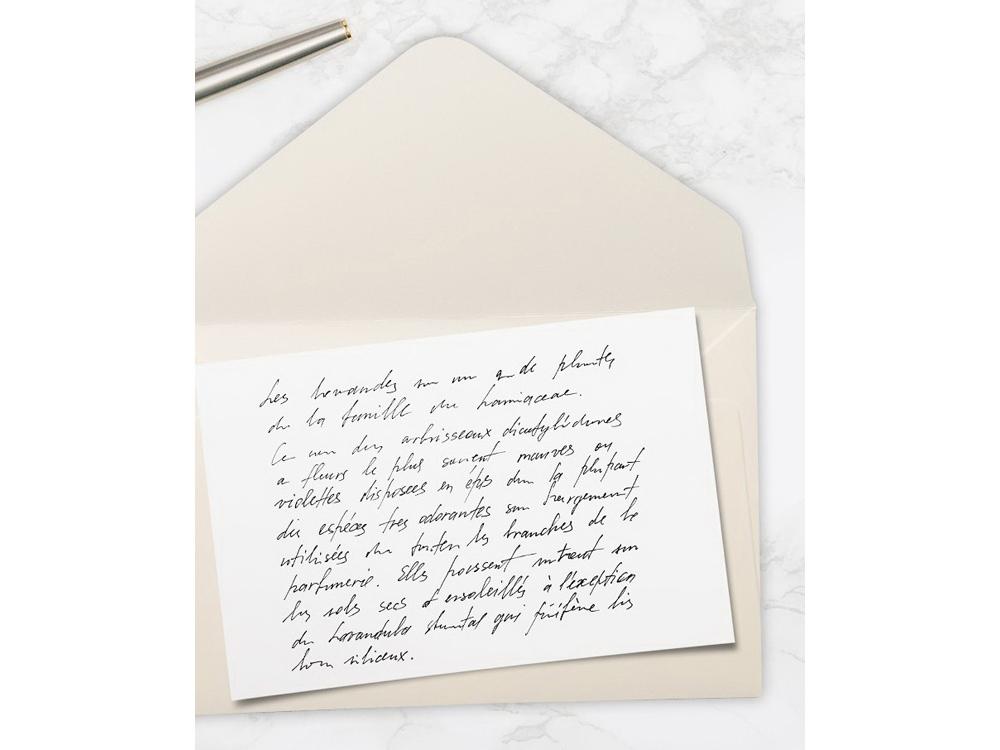 Les lavandes sont un de plantes
de la famille du Lamiaceae.
Ce sont des arbrisseaux dicotylédones
a fleurs le plus souvent mauves ou
violettes disposées en épis dan la plupart
des espéces tres odorantes sont largement
utilisées dans toutes les branches de la
parfumerie. Elles poussent surtout sur
les sols secs et ensoleillés à l'exception
du Lavandula qui préfère les
siliceux.